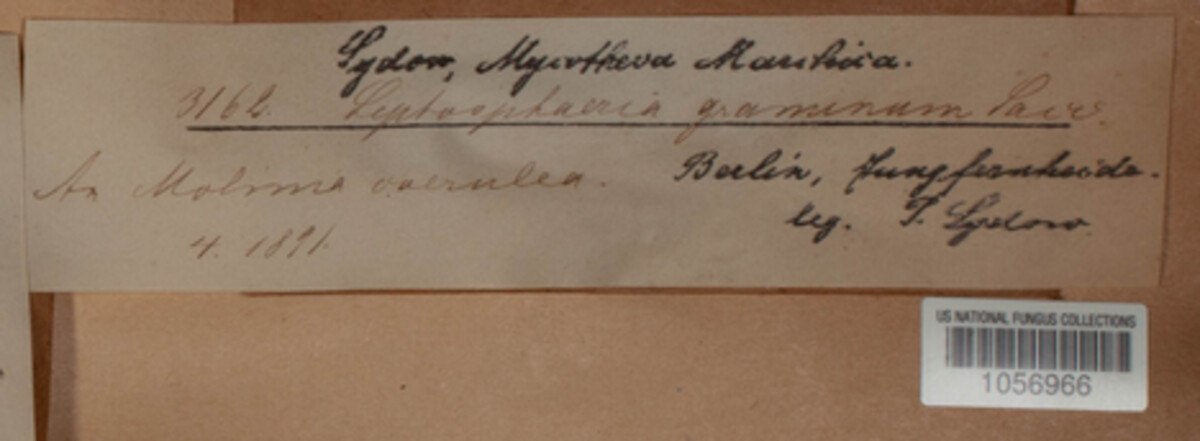 Sydow, Mycotheca Marchica.
3162. Leptosphaeria graminum Sacc.
An Molinia coerulea. Berlin, Jungfernheide.
4. 1891. leg. P. Sydow.
US NATIONAL FUNGUS COLLECTIONS
1056966